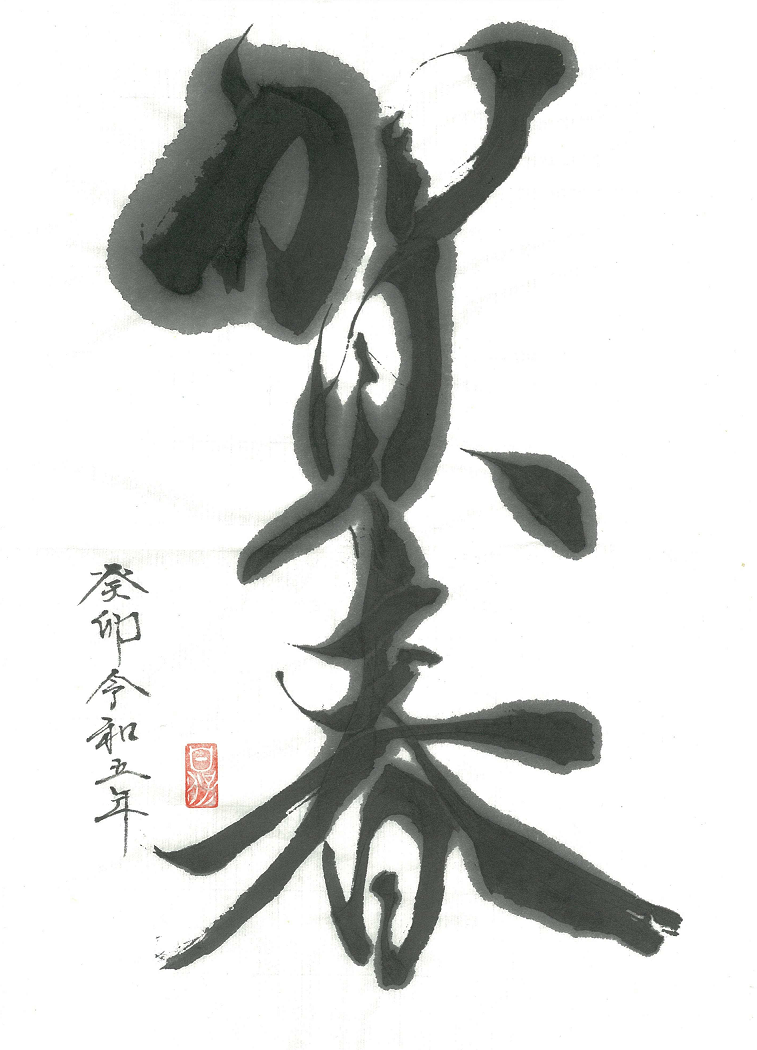 賀春
癸卯令和五年